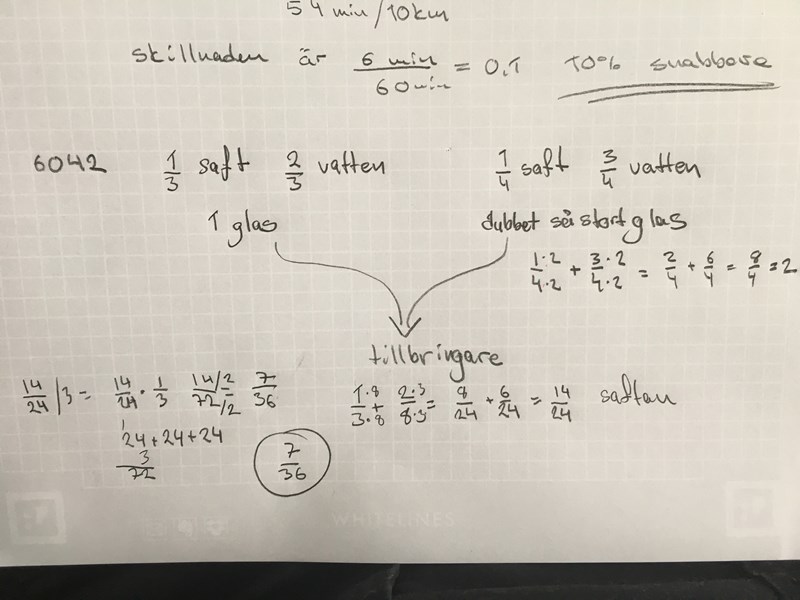 54 min/10km
skillnaden är 6 min/60 min = 0,1 10% snabbare
6042 1/3 saft 2/3 vatten 1/4 saft 3/4 vatten
1 glas dubbet så stort glas
1·2/4·2 + 3·2/4·2 = 2/4 + 6/4 = 8/4 = 2
tillbringare
14/24 /3 = 14/24 · 1/3 14/2/72/2 = 7/36
1·8/3·8 + 2·3/8·3 = 8/24 + 6/24 = 14/24 saften
1
24+24+24
3
72
7/36
WHITELINES